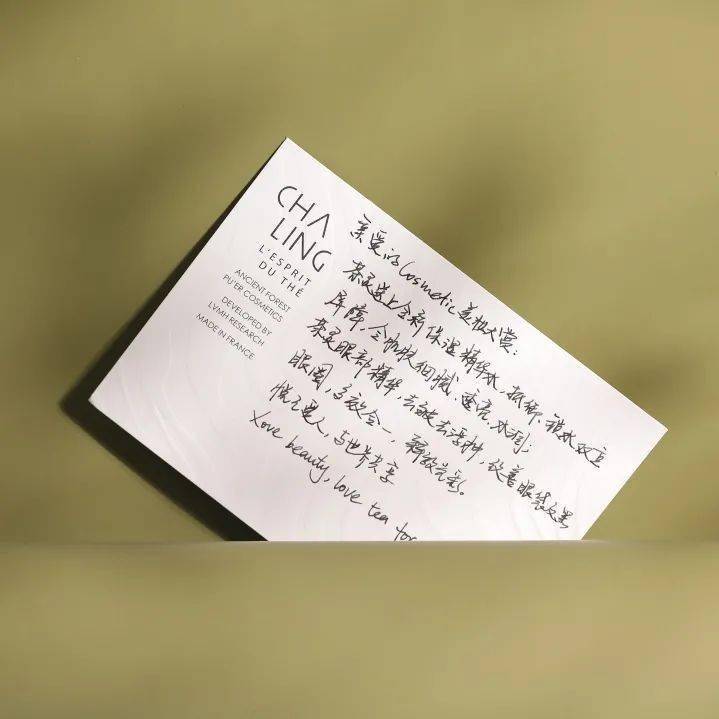 CHA
LING
L'ESPRIT
DU THÉ
ANCIENT FOREST
PU'ER COSMETICS
DEVELOPED BY
LVMH RESEARCH
MADE IN FRANCE
亲爱的Cosmetic美妆大赏：
茶灵送上全新保湿精华水，抵御、补水双重
屏障，令肌肤细腻、透亮、水润；
茶灵眼部精华，击破去浮肿，改善眼袋及黑
眼圈，多效合一，释放光彩。
悦己爱人，与世界共享
Love beauty, love tea